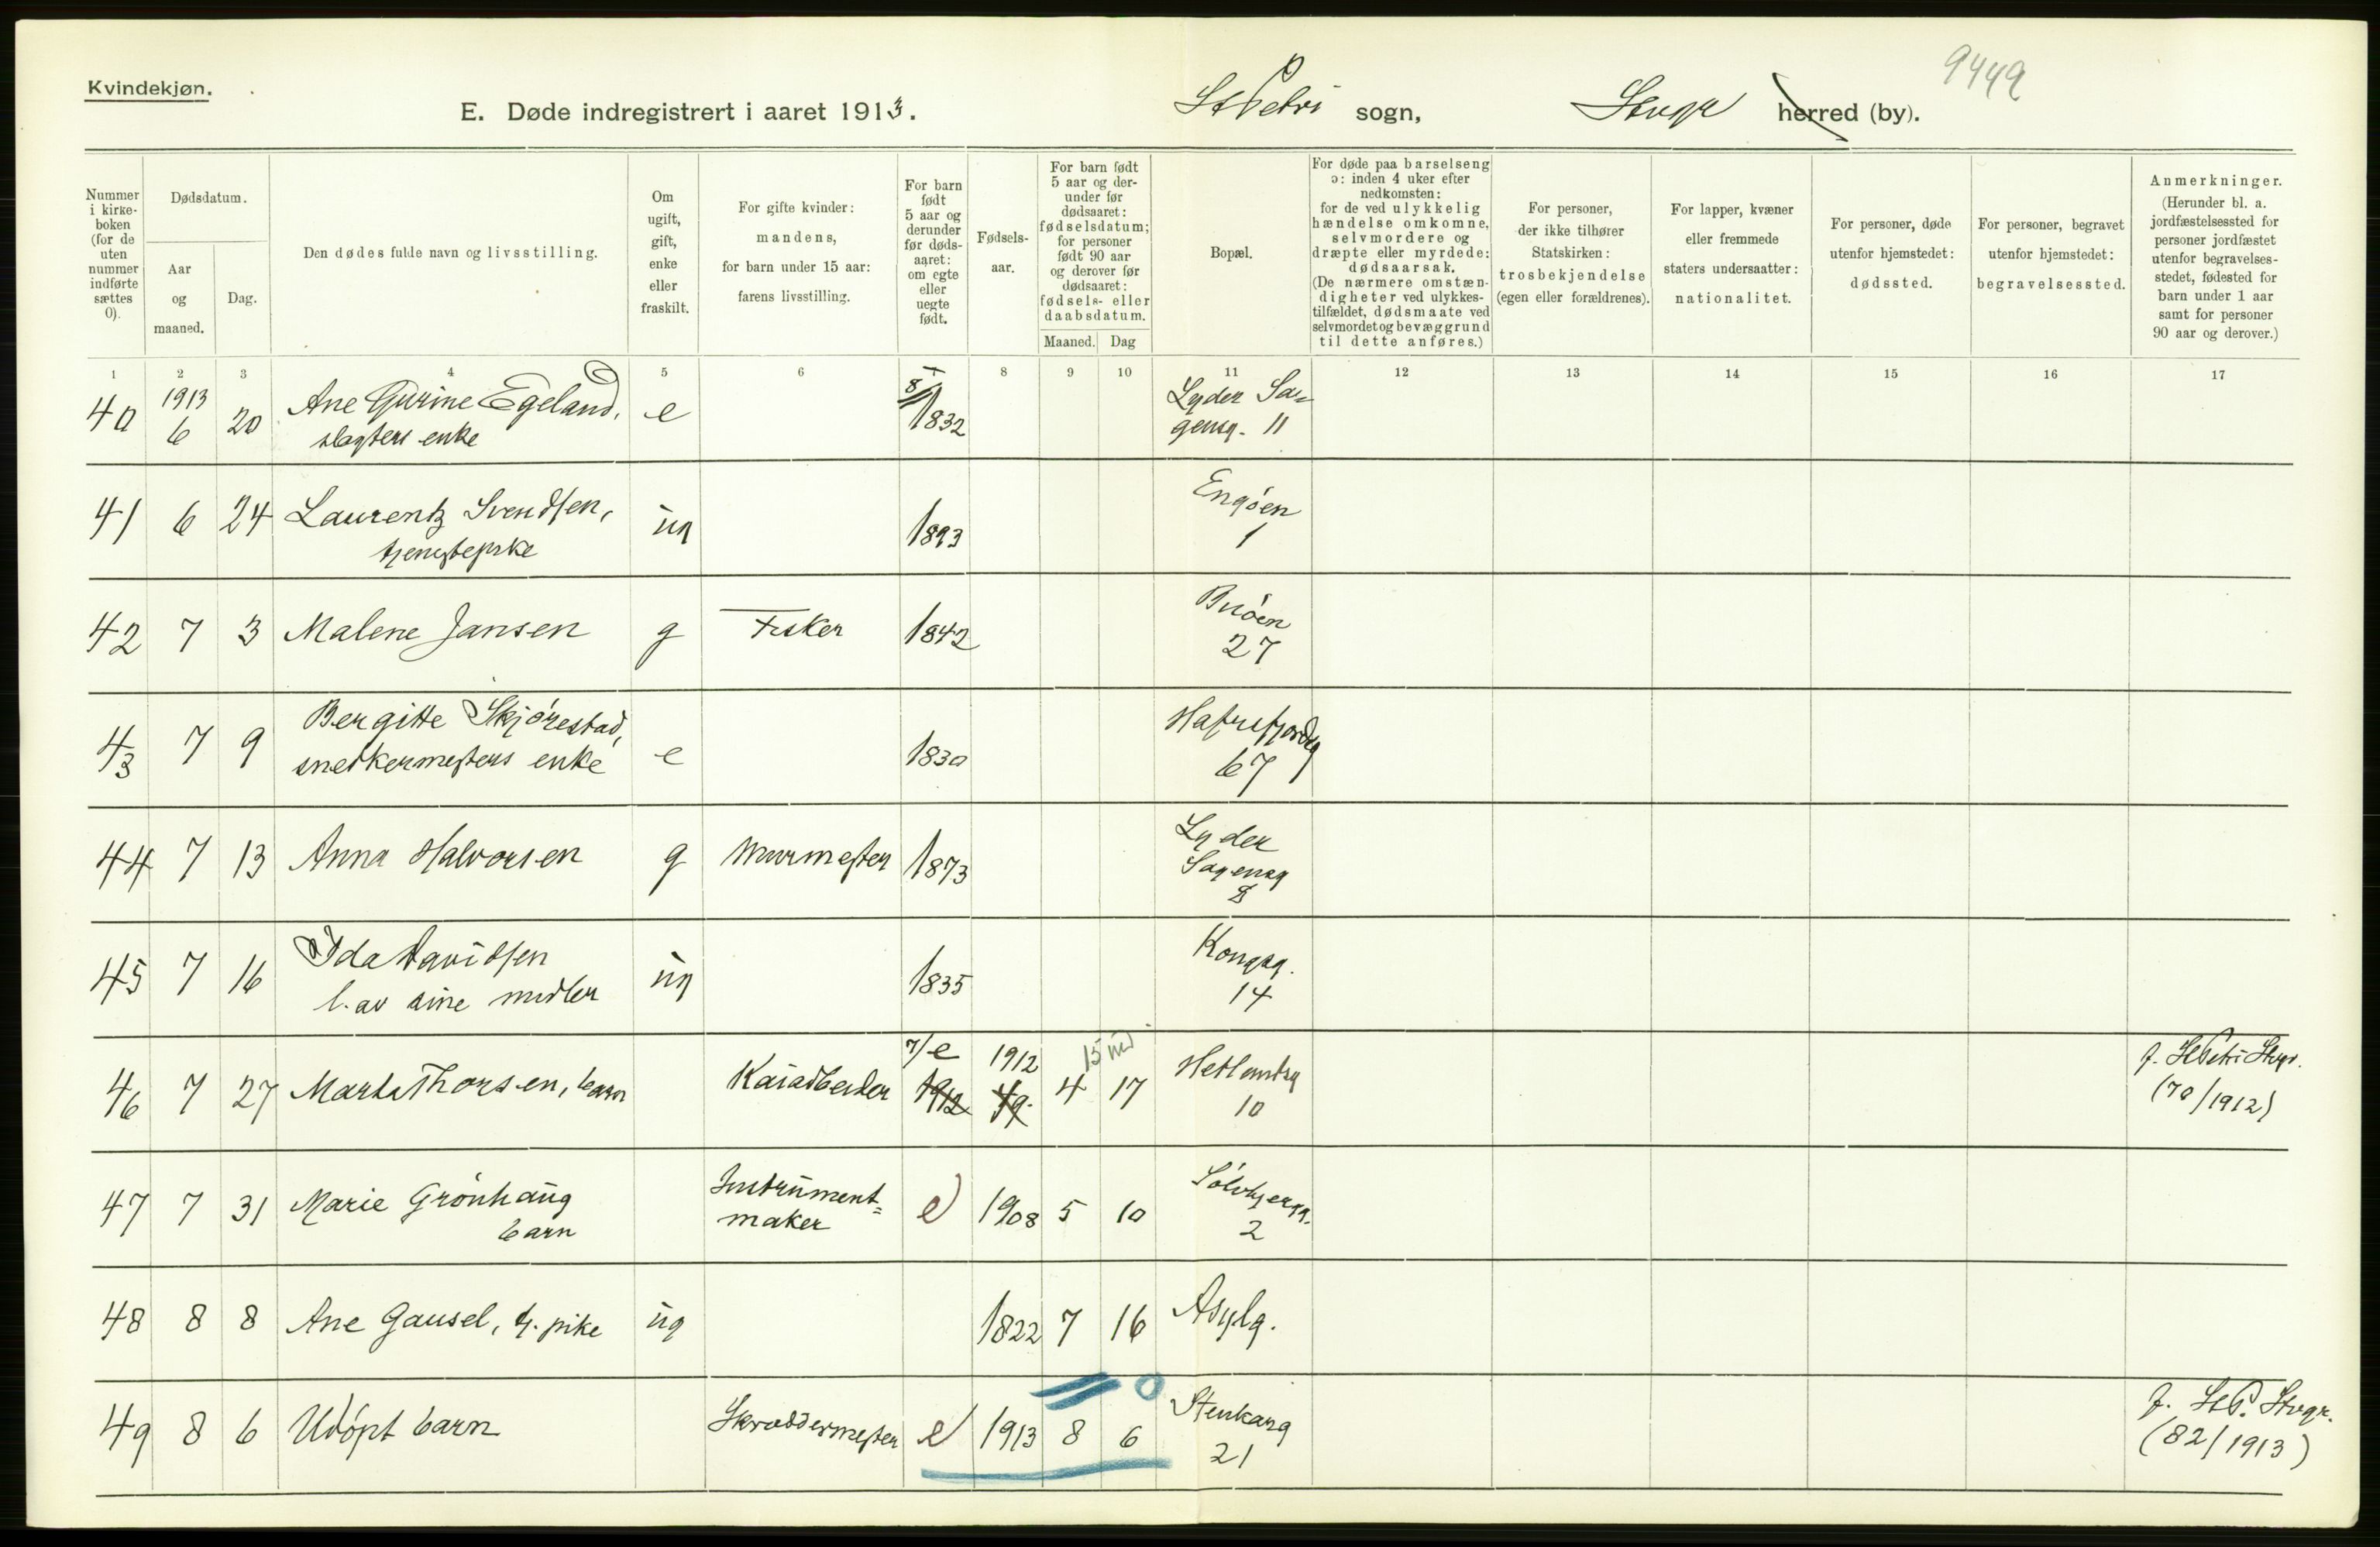 Kvindekjøn.
E. Døde indregistrert i aaret 1913.
St Petri sogn,
Stvgr herred (by).
9449
Nummer i kirke-boken (for de uten nummer indførte sættes 0).
Dødsdatum.
Aar og maaned.
Dag.
Den dødes fulde navn og livsstilling.
Om ugift, gift, enke eller fraskilt.
For gifte kvinder: mandens, for barn under 15 aar: farens livsstilling.
For barn født 5 aar og derunder før døds-aaret: om egte eller uegte født.
Fødsels-aar.
For barn født 5 aar og der-under før dødsaaret: fødselsdatum; for personer født 90 aar og derover før dødsaaret: fødsels- eller daabsdatum.
Maaned. Dag
Bopæl.
For døde paa barselseng ɔ: inden 4 uker efter nedkomsten: for de ved ulykkelig hændelse omkomne, selvmordere og dræpte eller myrdede: dødsaarsak. (De nærmere omstæn-digheter ved ulykkes-tilfældet, dødsmaate ved selvmordet og bevæggrund til dette anføres.)
For personer, der ikke tilhører Statskirken: trosbekjendelse (egen eller forældrenes).
For lapper, kvæner eller fremmede staters undersaatter: nationalitet.
For personer, døde utenfor hjemstedet: dødssted.
For personer, begravet utenfor hjemstedet: begravelsessted.
Anmerkninger. (Herunder bl. a. jordfæstelsessted for personer jordfæstet utenfor begravelses-stedet, fødested for barn under 1 aar samt for personer 90 aar og derover.)
1 2 3 4 5 6 8 9 10 11 12 13 14 15 16 17
40 1913 6 20 Ane Gurine Egeland, slagters enke e 1832 Lyder Sa-gensg. 11
41 6 24 Laurentz Svendsen, tjenestepike ug 1893 Engøen 1
42 7 3 Malene Jansen g Fisker 1842 Buøen 27
43 7 9 Bergitte Skjørestad, snedkermesters enke e 1830 Hafrsfjordg 67
44 7 13 Anna Halvorsen g Murmester 1873 Lyder Sagensg 8
45 7 16 Ida Davidsen l. av sine midler ug 1835 Kongsg. 14
46 7 27 Marta Thorsen, barn Kaiarbeider e 1912 1912 4 17 15 md Hetlandsg 10 f. St Petri Stvgr. (70/1912)
47 7 31 Marie Grönhaug barn Instrument-maker e 1908 5 10 Sølvbergg. 2
48 8 8 Ane Gausel, tj. pike ug 1822 7 16 Asylg.
49 8 6 Udöpt barn Skræddermester e 1913 8 6 0 Stenkarg 21 f. St P. Stvgr. (82/1913)